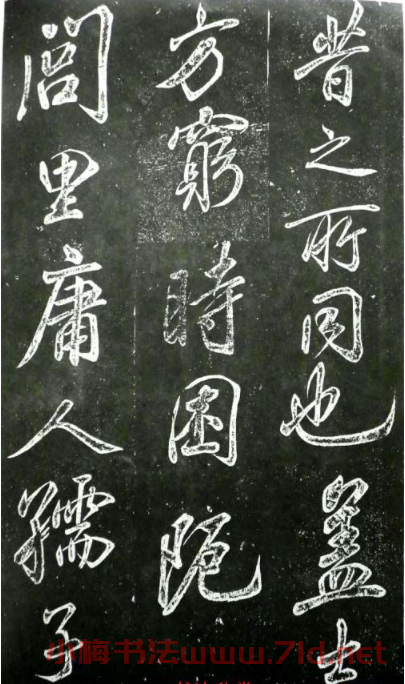 昔之所同也蓋士
方窮時困阨
閭里庸人孺子
小梅书法www.7ld.net